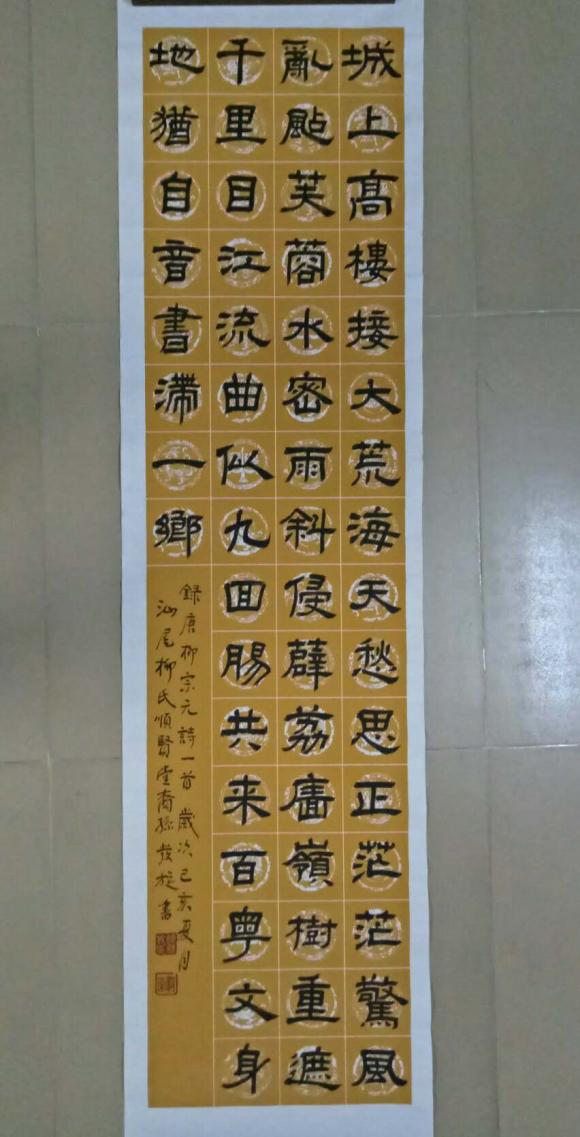 城上髙樓接大荒海天愁思正茫茫驚風
亂颭芙蓉水密雨斜侵薜荔廧嶺樹重遮
千里目江流曲似九囬腸共来百粤文身
地猶自音書滯一鄉
録唐柳宗元詩一首歲次己亥夏月
汕尾柳氏順賢堂裔孫發旋書